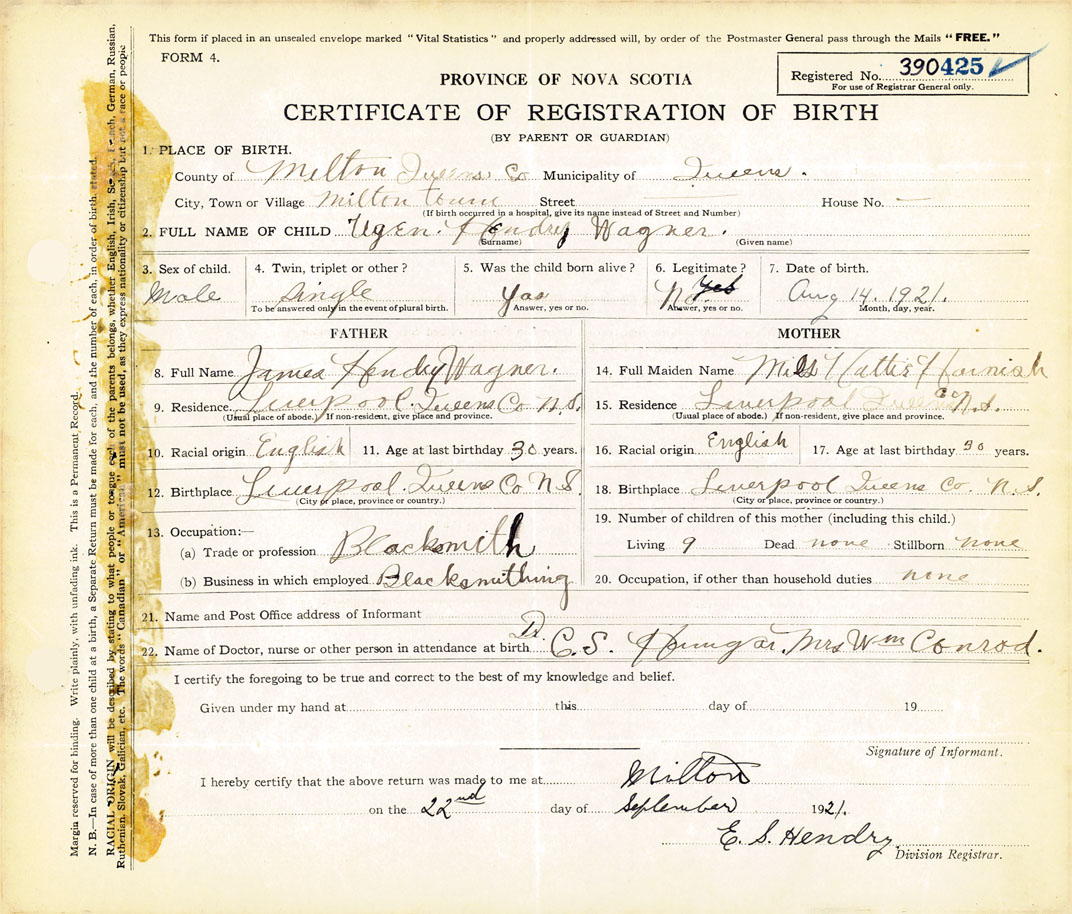 This form if placed in an unsealed envelope marked "Vital Statistics" and properly addressed will, by order of the Postmaster General pass through the Mails "FREE."
FORM 4.
Registered No. 390425
For use of Registrar General only.
PROVINCE OF NOVA SCOTIA
CERTIFICATE OF REGISTRATION OF BIRTH
(BY PARENT OR GUARDIAN)
1. PLACE OF BIRTH.
County of Milton Queens Co Municipality of Queens.
City, Town or Village Milton town Street House No. —
(If birth occurred in a hospital, give its name instead of Street and Number)
2. FULL NAME OF CHILD Ugen. Hendry Wagner.
(Surname) (Given name)
3. Sex of child. 4. Twin, triplet or other? 5. Was the child born alive? 6. Legitimate? 7. Date of birth.
Male Single Yas No. Yes Aug 14. 1921.
To be answered only in the event of plural birth. Answer, yes or no. Answer, yes or no. Month, day, year.
FATHER
8. Full Name James Hendry Wagner.
9. Residence Liverpool. Queens Co N.S.
(Usual place of abode.) If non-resident, give place and province.
10. Racial origin English 11. Age at last birthday 30 years.
12. Birthplace Liverpool. Queens Co N.S.
(City or place, province or country.)
13. Occupation:—
(a) Trade or profession Blacksmith
(b) Business in which employed Blacksmithing
MOTHER
14. Full Maiden Name Hattie Harnish
15. Residence Liverpool Queens Co N.S.
(Usual place of abode.) If non-resident, give place and province.
16. Racial origin English 17. Age at last birthday 30 years.
18. Birthplace Liverpool Queens Co. N.S
(City or place, province or country.)
19. Number of children of this mother (including this child.)
Living 9 Dead none Stillborn none
20. Occupation, if other than household duties none
21. Name and Post Office address of Informant
22. Name of Doctor, nurse or other person in attendance at birth Dr. C. S. Mrs Wm Conrod.
I certify the foregoing to be true and correct to the best of my knowledge and belief.
Given under my hand at this day of 19
Signature of Informant.
I hereby certify that the above return was made to me at Milton
on the 22nd day of September 1921.
E. S. Hendry
Division Registrar.
Margin reserved for binding. Write plainly, with unfading ink. This is a Permanent Record.
N. B.—In case of more than one child at a birth, a Separate Return must be made for each, and the number of each, in order of birth, stated.
RACIAL ORIGIN will be described by stating to what people or tongue each of the parents belongs, whether English, Irish, Scotch, French, German, Russian,
Ruthenian, Slovak, Galician, etc. The words "Canadian" or "American" must not be used, as they express nationality or citizenship but not a race or people